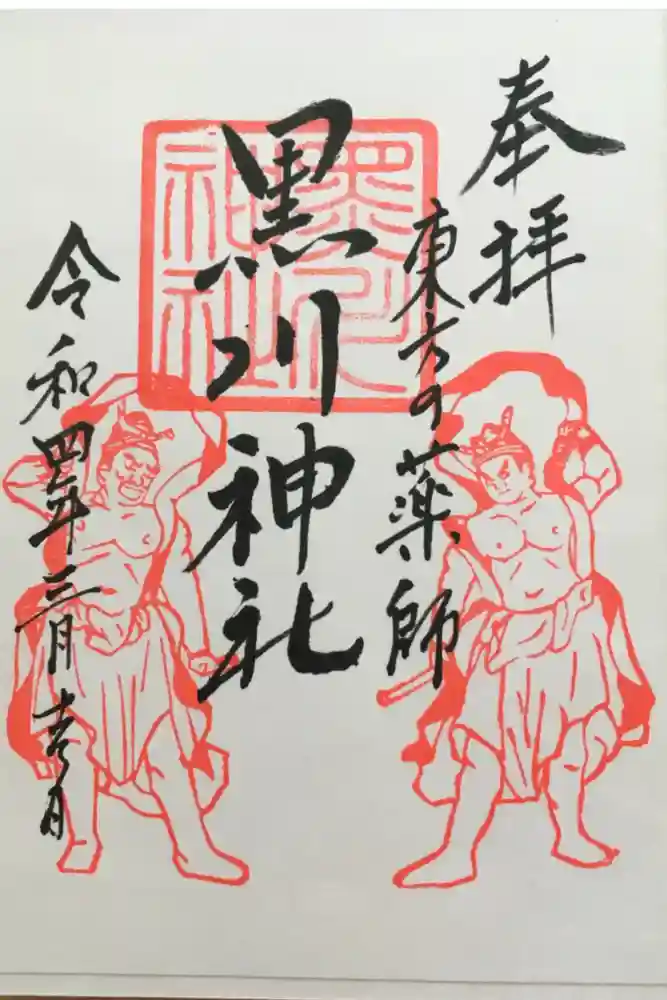 奉拝
東方の薬師
黒川神社
黒川神社
令和四年三月吉日